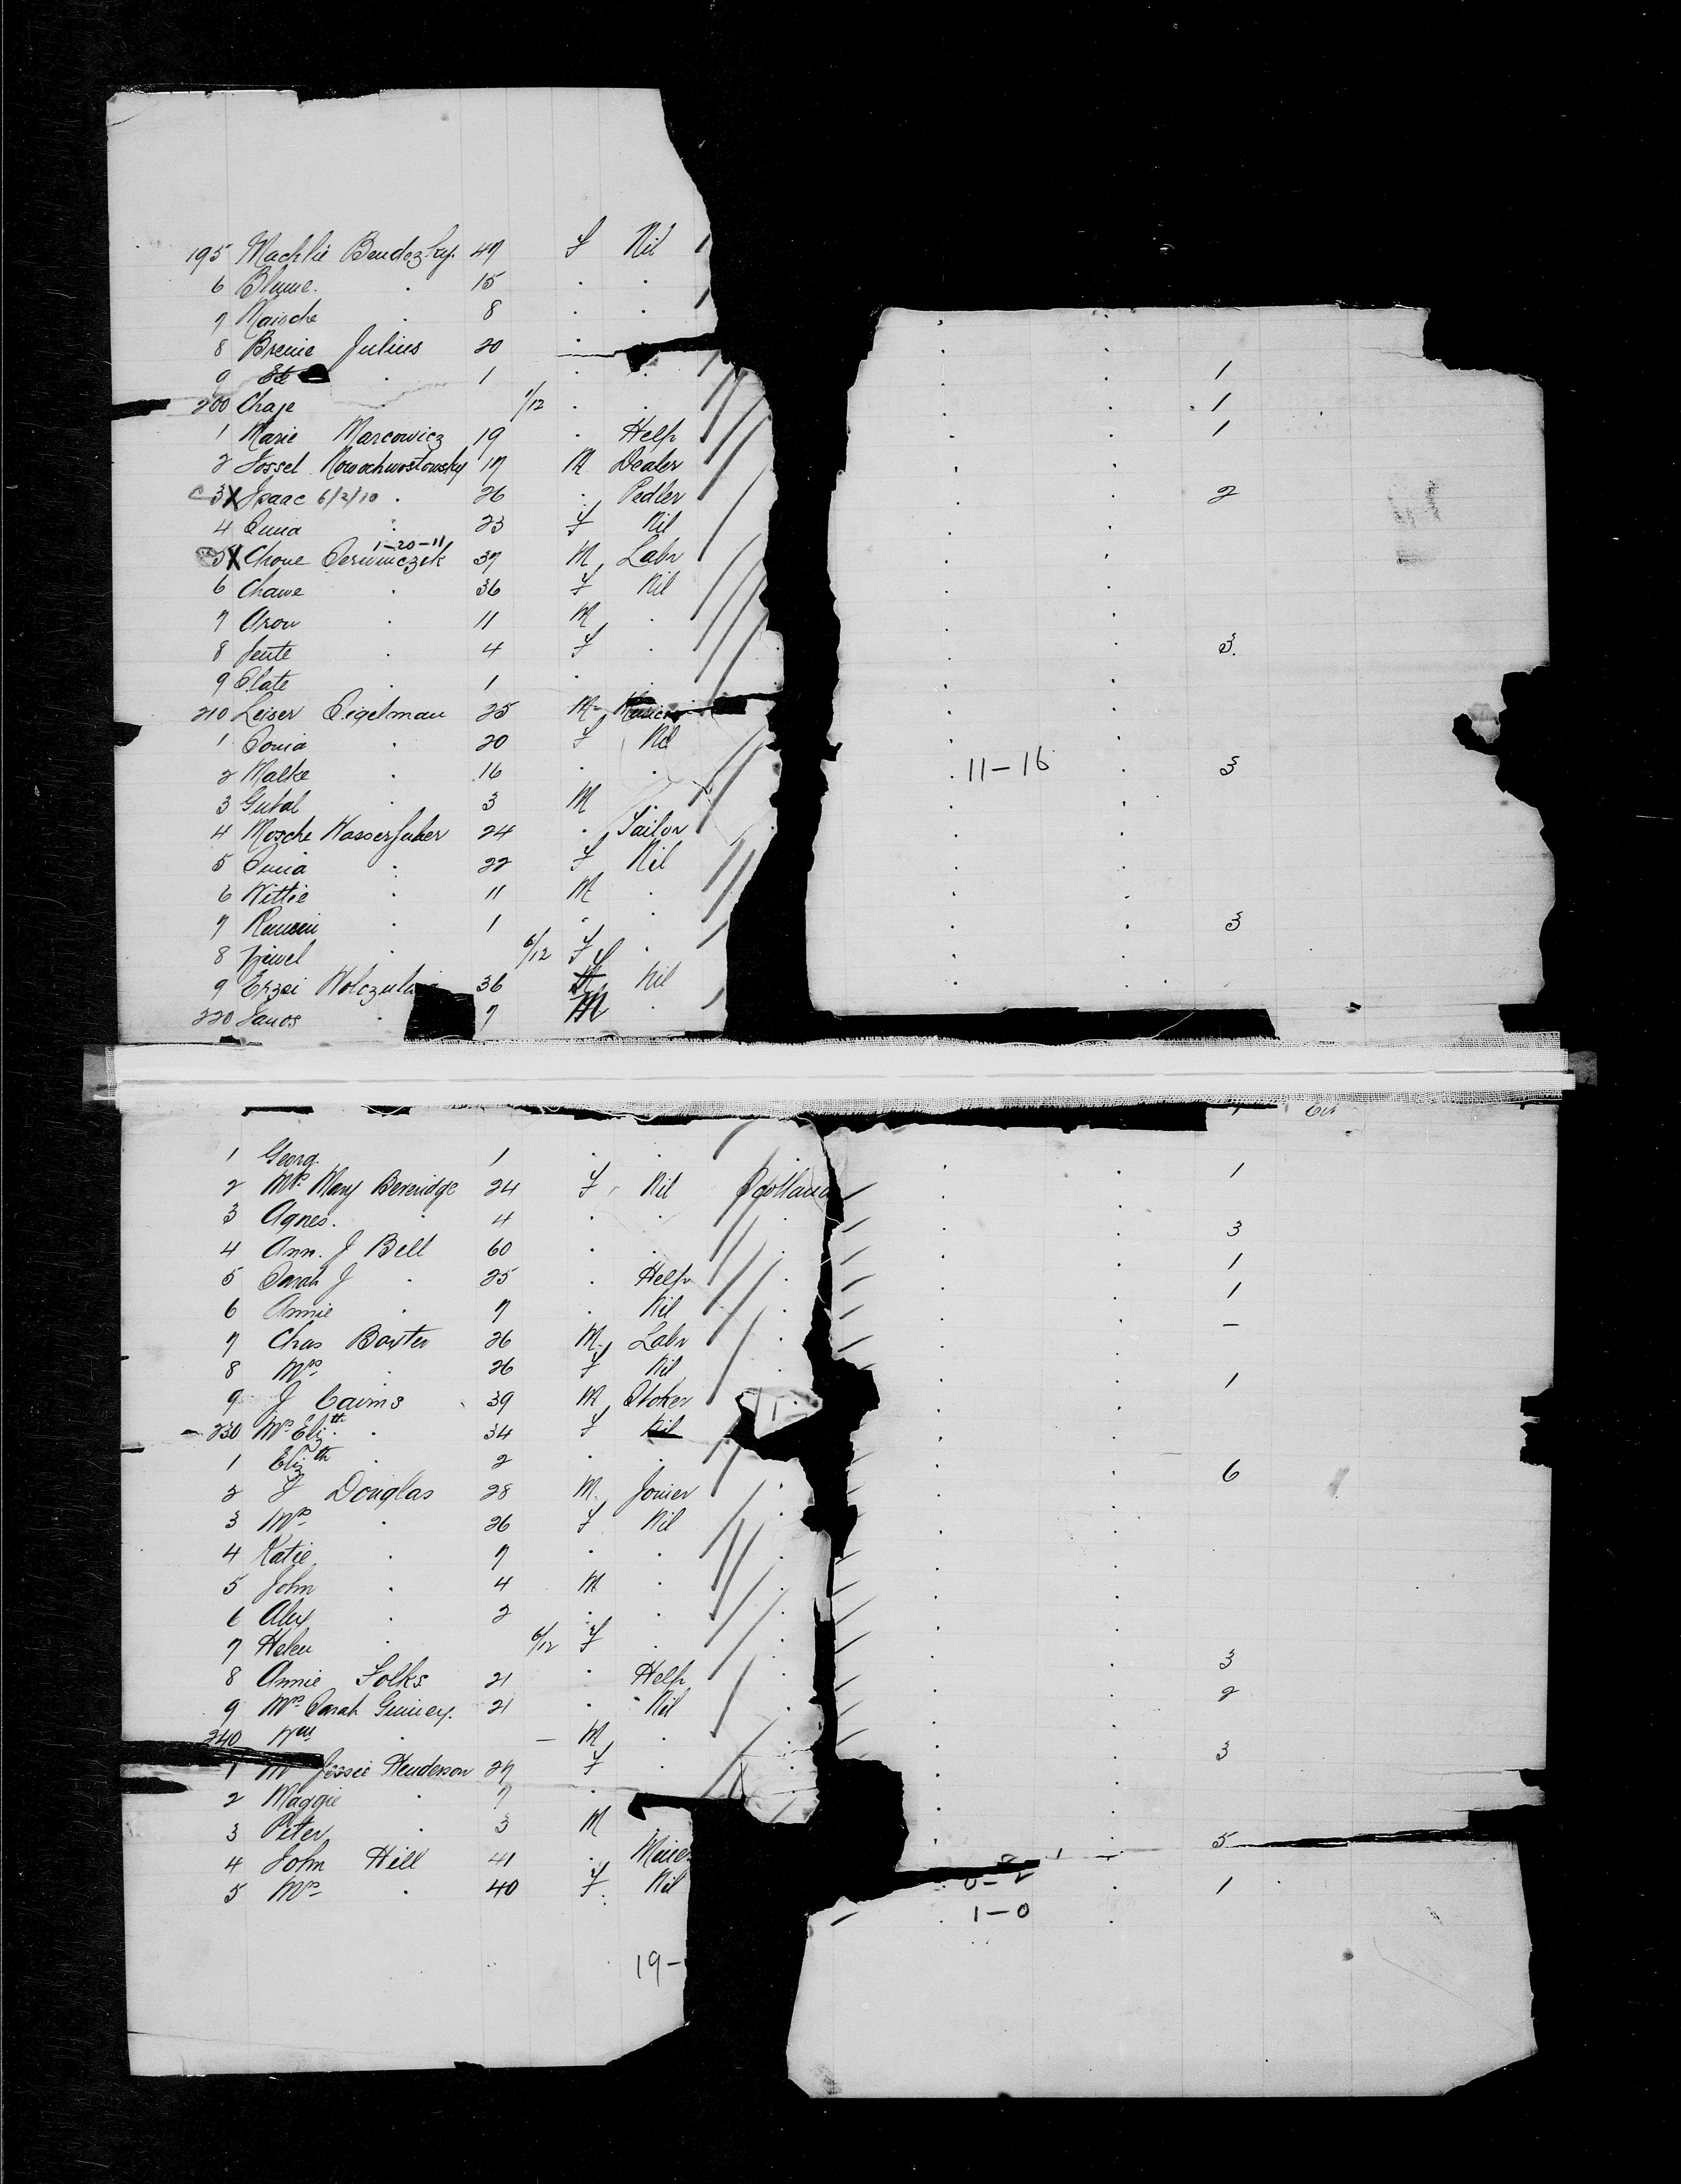 195 Machlie Bendezky. 49 F Nil
6 Blume. . 15 . .
7 Maische . 8 . .
8 Breine Julius 20 .
9 . 1 . . . . 1
200 Chaje . 1/12 . . . . 1
1 Marie Marcowicz 19 . Help . . 1
2 Jossel Nowochwostowsky 17 M Dealer
3 X Isaac 6/2/10 . 26 . Pedler . . 2
4 . 23 F Nil
1-20-11
5 X Chone 37 M Labr
6 Chawe . 36 F Nil
7 Aron . 11 M .
8 Jente . 4 F . . . 3.
9 Slate . 1 . .
210 Leiser Sigelman 25 M
1 Sonia . 20 F Nil
2 Malke . 16 . . . 11-16 . 3
3 . 3 M
4 Mosche 24 . Tailor
5 . 22 F Nil
6 Wittie . 11 M .
7 . 1 . . . . 3
8 . 6/12 F .
9 Erzsi 36 F Nil
220 Janos . 7 M .
1 Georg. 1 . . . . 1
2 Mrs Mary Beveridge 24 F Nil Scotland
3 Agnes. . 4 . . . . 3
4 Ann. J Bell 60 . . . . 1
5 Sarah J . 25 . Help . . 1
6 Annie . 7 . Nil . . -
7 Chas Baxter 26 M Labr
8 Mrs . 26 F Nil . . 1
9 J Cairns 39 M Stoker
230 Mrs Elizth . 34 F Nil
1 Elizth . 2 . . . . 6
2 J Douglas 28 M. Joiner
3 Mrs . 26 F Nil
4 Katie . 7 . .
5 John . 4 M .
6 Alex . 2 . .
7 Helen . 6/12 F .
8 Annie Folks 21 . Help . . 3
9 Mrs Sarah Guiney. 21 . Nil . . 2
240 Wm . - M .
1 Jessie Henderson 27 F . . . 3
2 Maggie . 7 .
3 Peter . 3 M . . . 5
4 John Hill 41 . Miner
5 Mrs . 40 F Nil . . 1
1-0
19-